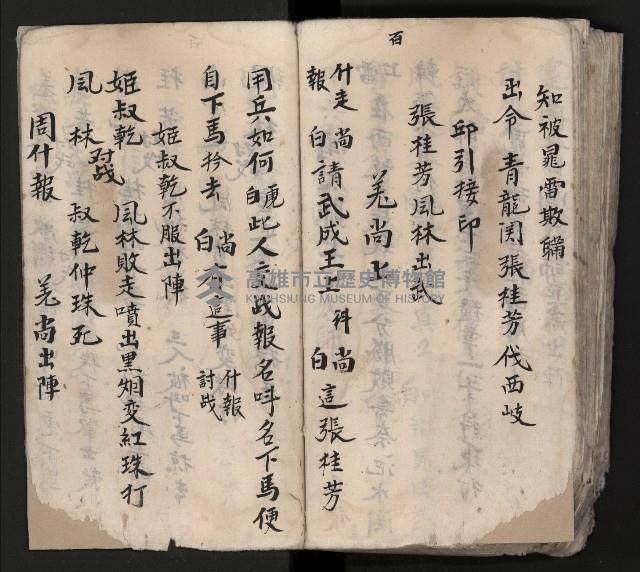 百
知被晁雷欺瞞
出令青龍関張桂芳伐西岐
邱引接印
張桂芳風林出武
羌尚上
什走尚請武成王上科尚這張桂芳
報白白
百
用兵如何虎白此人交战報名呌名下馬便
自下馬拎去尚白有這事什報討战
姬叔乾不服出陣
姬叔乾对战風林敗走噴出黑烟变紅珠打
風林叔乾仲珠死
周什報羌尚出陣
高雄市立歷史博物館
KAOHSIUNG MUSEUM OF HISTORY